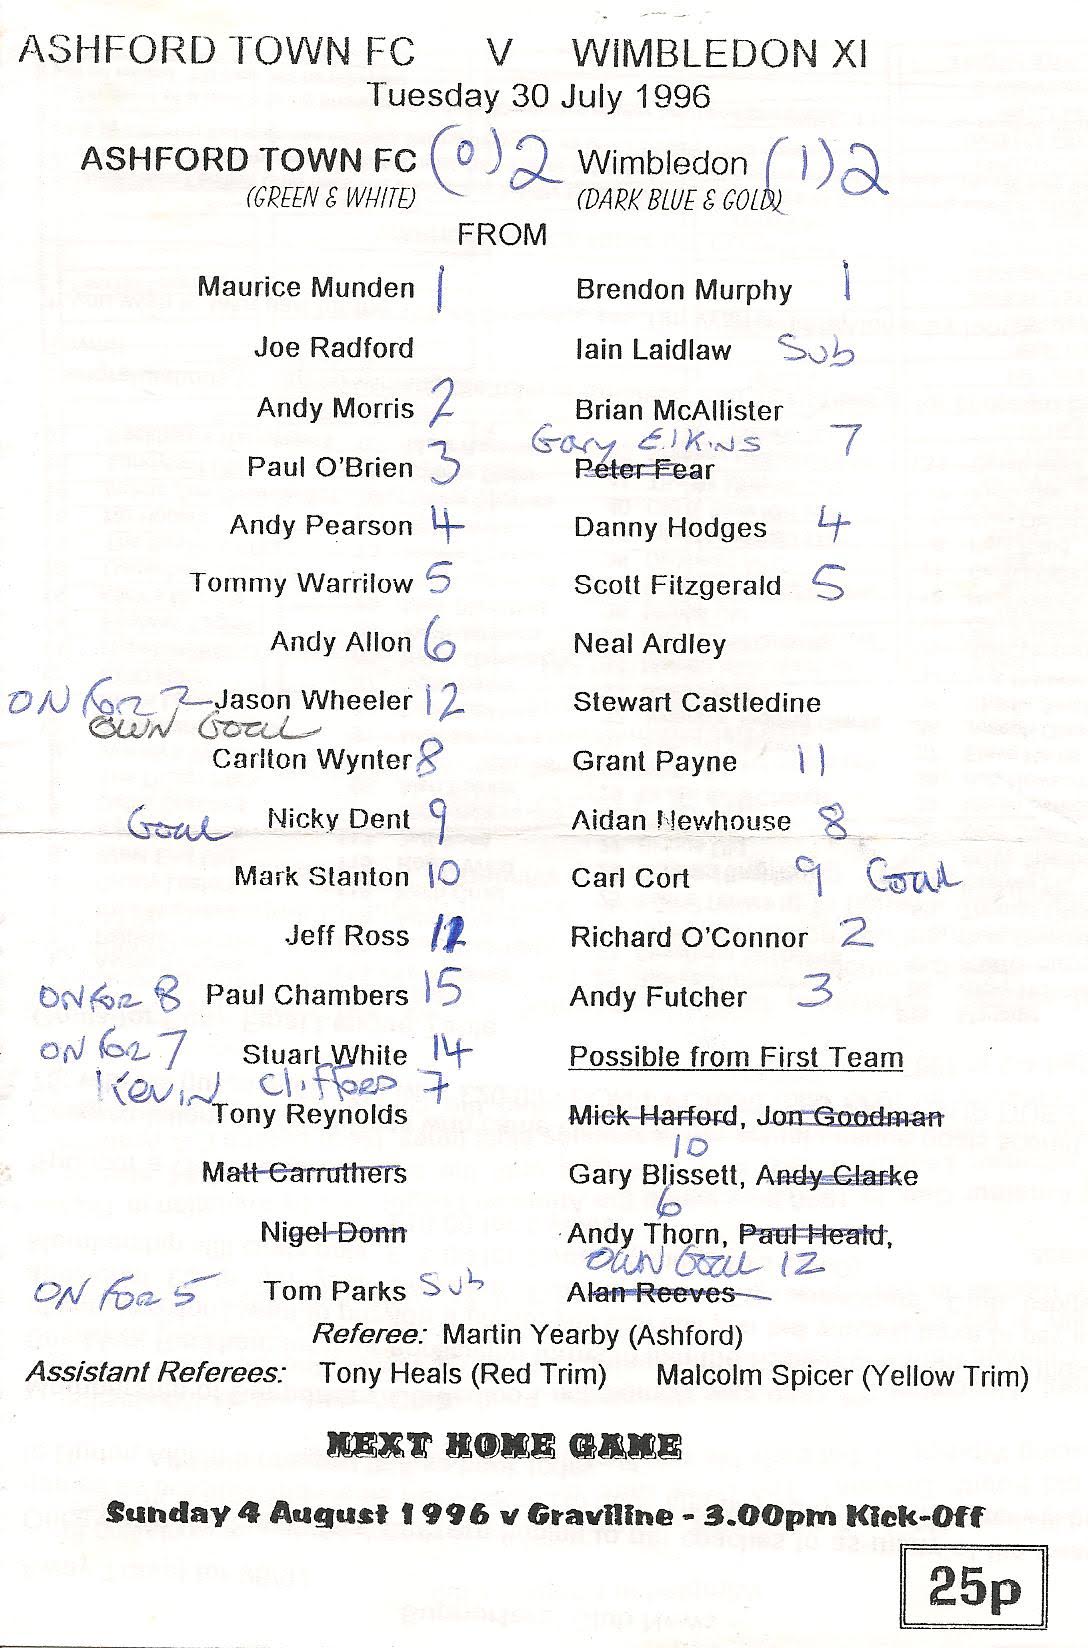 ASHFORD TOWN FC V WIMBLEDON XI
Tuesday 30 July 1996
ASHFORD TOWN FC (0) 2 Wimbledon (1) 2
(GREEN & WHITE) (DARK BLUE & GOLD)
FROM
Maurice Munden 1 Brendon Murphy 1
Joe Radford Iain Laidlaw Sub
Andy Morris 2 Brian McAllister
Gary Elkins 7
Paul O'Brien 3 Peter Fear
Andy Pearson 4 Danny Hodges 4
Tommy Warrilow 5 Scott Fitzgerald 5
Andy Allon 6 Neal Ardley
ON for 2 Jason Wheeler 12 Stewart Castledine
OWN Goal
Carlton Wynter 8 Grant Payne 11
Goal Nicky Dent 9 Aidan Newhouse 8
Mark Stanton 10 Carl Cort 9 Goal
Jeff Ross 11 Richard O'Connor 2
ON for 8 Paul Chambers 15 Andy Futcher 3
ON for 7 Stuart White 14 Possible from First Team
Kevin Clifford 7
Tony Reynolds Mick Harford, Jon Goodman
10
Matt Carruthers Gary Blissett, Andy Clarke
6
Nigel Donn Andy Thorn, Paul Heald,
OWN Goal 12
ON for 5 Tom Parks Sub Alan Reeves
Referee: Martin Yearby (Ashford)
Assistant Referees: Tony Heals (Red Trim) Malcolm Spicer (Yellow Trim)
NEXT HOME GAME
Sunday 4 August 1996 v Graviline - 3.00pm Kick-Off
25p